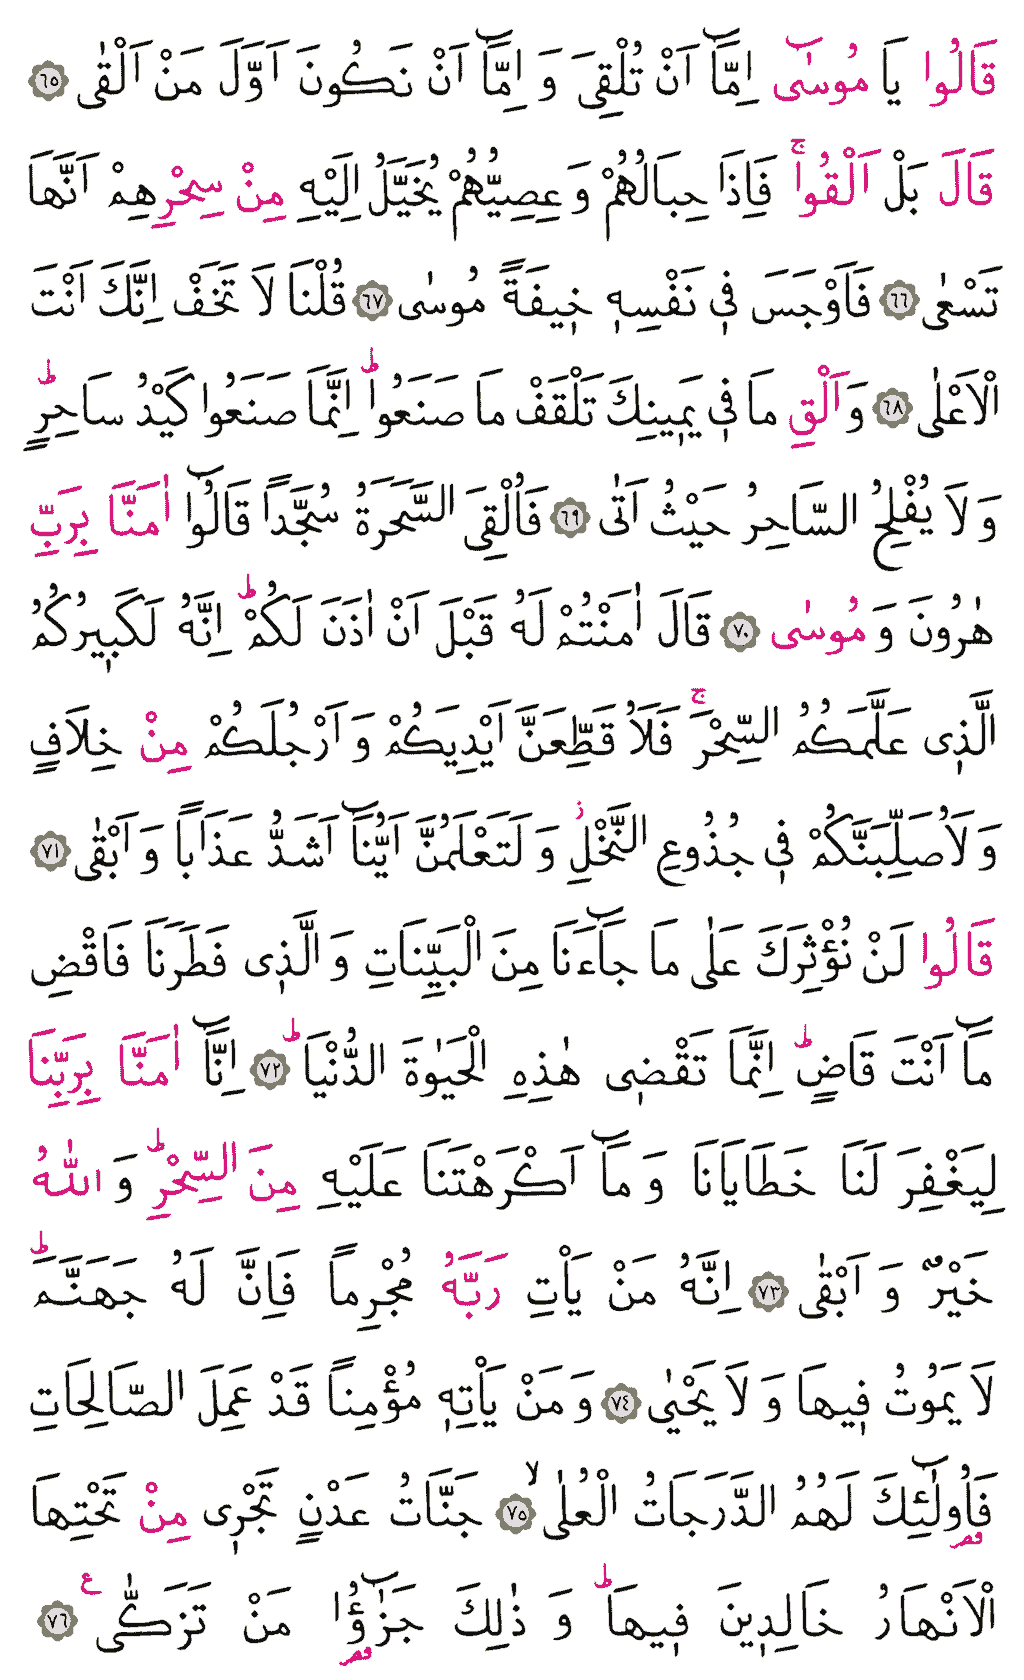 قَالُوا يَا مُوسٰٓى اِمَّٓا اَنْ تُلْقِىَ وَ اِمَّٓا اَنْ نَكُونَ اَوَّلَ مَنْ اَلْقٰى ﴿٦٥﴾
قَالَ بَلْ اَلْقُواۚ فَاِذَا حِبَالُهُمْ وَ عِصِيُّهُمْ يُخَيَّلُ اِلَيْهِ مِنْ سِحْرِهِمْ اَنَّهَا
تَسْعٰى ﴿٦٦﴾ فَاَوْجَسَ فٖى نَفْسِهٖ خٖيفَةً مُوسٰى ﴿٦٧﴾ قُلْنَا لَا تَخَفْ اِنَّكَ اَنْتَ
الْاَعْلٰى ﴿٦٨﴾ وَ اَلْقِ مَا فٖى يَمٖينِكَ تَلْقَفْ مَا صَنَعُواؕ اِنَّمَا صَنَعُوا كَيْدُ سَاحِرٍؕ
وَ لَا يُفْلِحُ السَّاحِرُ حَيْثُ اَتٰى ﴿٦٩﴾ فَاُلْقِىَ السَّحَرَةُ سُجَّدًا قَالُٓوا اٰمَنَّا بِرَبِّ
هٰرُونَ وَ مُوسٰى ﴿٧٠﴾ قَالَ اٰمَنْتُمْ لَهُ قَبْلَ اَنْ اٰذَنَ لَكُمْؕ اِنَّهُ لَكَبٖيرُكُمُ
الَّذٖى عَلَّمَكُمُ السِّحْرَۚ فَلَاُ قَطِّعَنَّ اَيْدِيَكُمْ وَ اَرْجُلَكُمْ مِنْ خِلَافٍ
وَ لَاُصَلِّبَنَّكُمْ فٖى جُذُوعِ النَّخْلِؗ وَ لَتَعْلَمُنَّ اَيُّنَٓا اَشَدُّ عَذَابًا وَ اَبْقٰى ﴿٧١﴾
قَالُوا لَنْ نُؤْثِرَكَ عَلٰى مَا جَٓاءَنَا مِنَ الْبَيِّنَاتِ وَ الَّذٖى فَطَرَنَا فَاقْضِ
مَٓا اَنْتَ قَاضٍؕ اِنَّمَا تَقْضٖى هٰذِهِ الْحَيٰوةَ الدُّنْيَاؕ ﴿٧٢﴾ اِنَّٓا اٰمَنَّا بِرَبِّنَا
لِيَغْفِرَ لَنَا خَطَايَانَا وَ مَٓا اَكْرَهْتَنَا عَلَيْهِ مِنَ السِّحْرِؕ وَ اللّٰهُ
خَيْرٌ وَ اَبْقٰى ﴿٧٣﴾ اِنَّهُ مَنْ يَاْتِ رَبَّهُ مُجْرِمًا فَاِنَّ لَهُ جَهَنَّمَؕ
لَا يَمُوتُ فٖيهَا وَ لَا يَحْيٰى ﴿٧٤﴾ وَ مَنْ يَاْتِهٖ مُؤْمِنًا قَدْ عَمِلَ الصَّالِحَاتِ
فَاُولٰٓئِكَ لَهُمُ الدَّرَجَاتُ الْعُلٰىۙ ﴿٧٥﴾ جَنَّاتُ عَدْنٍ تَجْرٖى مِنْ تَحْتِهَا
قصر
الْاَنْهَارُ خَالِدٖينَ فٖيهَاؕ وَ ذٰلِكَ جَزٰٓؤُا مَنْ تَزَكّٰى ع ﴿٧٦﴾
قصر